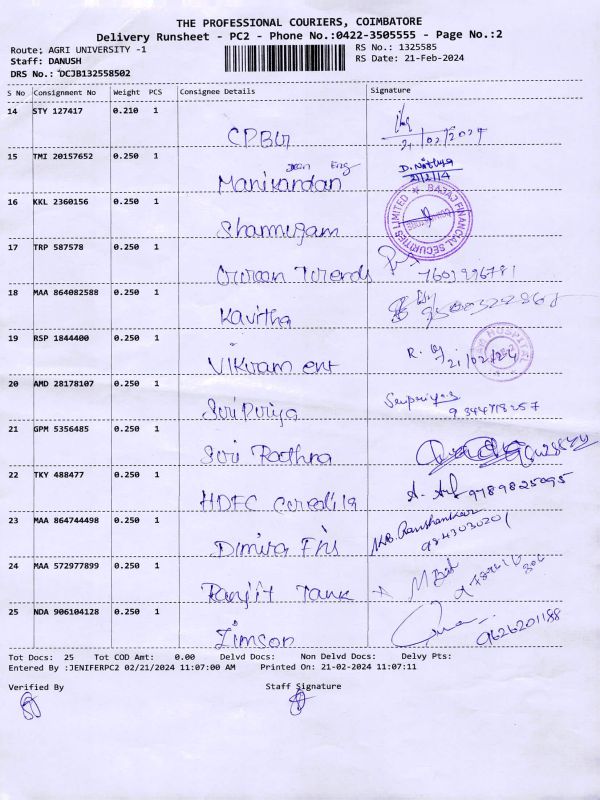 THE PROFESSIONAL COURIERS, COIMBATORE
Delivery Runsheet - PC2 - Phone No.:0422-3505555 - Page No.:2
Route: AGRI UNIVERSITY -1 RS No.: 1325585
Staff: DANUSH RS Date: 21-Feb-2024
DRS No.: *DCJB132558502
S No Consignment No Weight PCS Consignee Details Signature
14 STY 127417 0.210 1
CPBU 21/02/2024
15 TMI 20157652 0.250 1 D. Nithya
Manikandan 21/2/14
16 KKL 2360156 0.250 1 BAJAJ FINANCIAL SECURITIES LIMITED
Shanmugam
17 TRP 587578 0.250 1
Trends 7601996781
18 MAA 864082588 0.250 1
Kavitha
19 RSP 1844400 0.250 1 HOSPITAL
Vikram ent R. 21/02/24
20 AMD 28178107 0.250 1
Sri Priya 9344718257
21 GPM 5356485 0.250 1
Sri Rathna
22 TKY 488477 0.250 1
HDFC Credila A. 9789825095
23 MAA 864744498 0.250 1
9843030201
24 MAA 572977899 0.250 1
Ranjit Tank
25 NDA 906104128 0.250 1
Zimson 9626201188
Tot Docs: 25 Tot COD Amt: 0.00 Delvd Docs: Non Delvd Docs: Delvy Pts:
Entered By :JENIFERPC2 02/21/2024 11:07:00 AM Printed On: 21-02-2024 11:07:11
Verified By Staff Signature